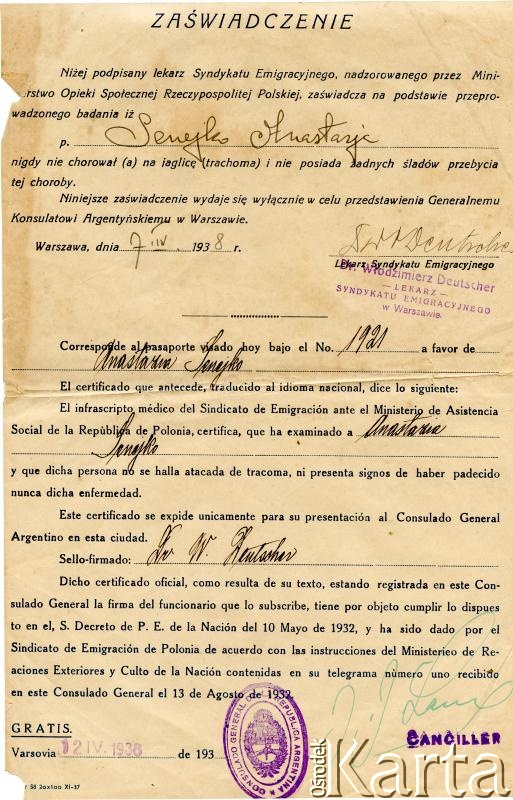 ZAŚWIADCZENIE
Niżej podpisany lekarz Syndykatu Emigracyjnego, nadzorowanego przez Mini-
erstwo Opieki Społecznej Rzeczypospolitej Polskiej, zaświadcza na podstawie przepro-
wadzonego badania iż
p. Senejko Anastazja
nigdy nie chorował (a) na jaglicę (trachoma) i nie posiada żadnych śladów przebycia
tej choroby.
Niniejsze zaświadczenie wydaje się wyłącznie w celu przedstawienia Generalnemu
Konsulatowi Argentyńskiemu w Warszawie.
Warszawa, dnia 7 IV. 1938 r.
Dr W Deutscher
Lekarz Syndykatu Emigracyjnego
Dr. Włodzimierz Deutscher
— LEKARZ —
SYNDYKATU EMIGRACYJNEGO
w Warszawie.
Corresponde al pasaporte visado hoy bajo el No. 1921 a favor de
Anastazia Senejko
El certificado que antecede, traducido al idioma nacional, dice lo siguiente:
El infrascripto médico del Sindicato de Emigración ante el Ministerio de Asistencia
Social de la República de Polonia, certifica, que ha examinado a Anastazia
Senejko
y que dicha persona no se halla atacada de tracoma, ni presenta signos de haber padecido
nunca dicha enfermedad.
Este certificado se expide unicamente para su presentación al Consulado General
Argentino en esta ciudad.
Sello-firmado: Dr W. Deutscher
Dicho certificado oficial, como resulta de su texto, estando registrada en este Con-
sulado General la firma del funcionario que lo subscribe, tiene por objeto cumplir lo dispues
to en el, S. Decreto de P. E. de la Nación del 10 Mayo de 1932, y ha sido dado por el
Sindicato de Emigración de Polonia de acuerdo con las instrucciones del Ministerieo de Re-
aciones Exteriores y Culto de la Nación contenidas en su telegrama número uno recibido
en este Consulado General el 13 de Agosto de 1932.
GRATIS.
CANCILLER
Varsovia 12 IV. 1938 de 193
CONSULADO GENERAL DE LA REPUBLICA ARGENTINA
58 2oxtoo XI-37
Ośrodek
Karta